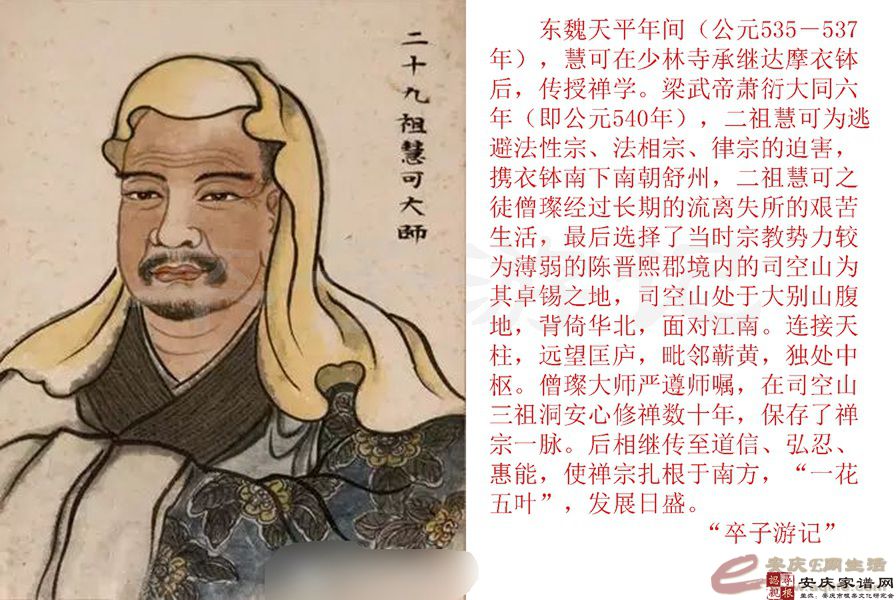 二十九祖慧可大師
东魏天平年间（公元535－537
年），慧可在少林寺承继达摩衣钵
后，传授禅学。梁武帝萧衍大同六
年（即公元540年），二祖慧可为逃
避法性宗、法相宗、律宗的迫害，
携衣钵南下南朝舒州，二祖慧可之
徒僧璨经过长期的流离失所的艰苦
生活，最后选择了当时宗教势力较
为薄弱的陈晋熙郡境内的司空山为
其卓锡之地，司空山处于大别山腹
地，背倚华北，面对江南。连接天
柱，远望匡庐，毗邻蕲黄，独处中
枢。僧璨大师严遵师嘱，在司空山
三祖洞安心修禅数十年，保存了禅
宗一脉。后相继传至道信、弘忍、
惠能，使禅宗扎根于南方，“一花
五叶”，发展日盛。
“卒子游记”
安庆E网生活
安庆家谱网